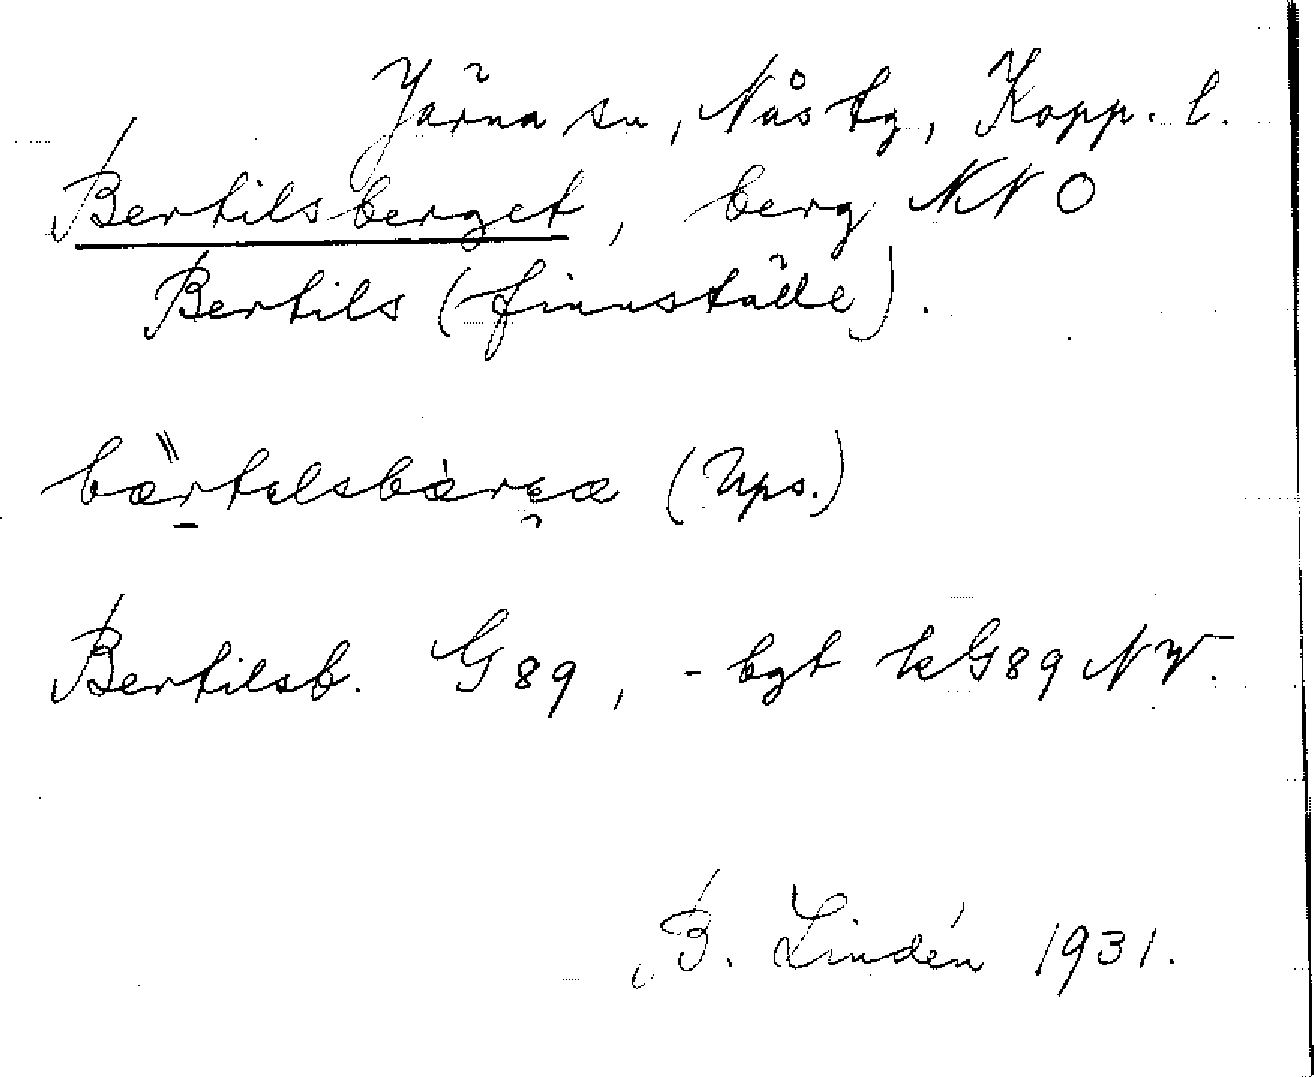 Järna sn, Nås tg, Kopp. l.
Bertilsberget, berg NNO
Bertils (finnställe).
(Ups.)
Bertilsb. G89, -bgt kG89NV.
B. Lindén 1931.